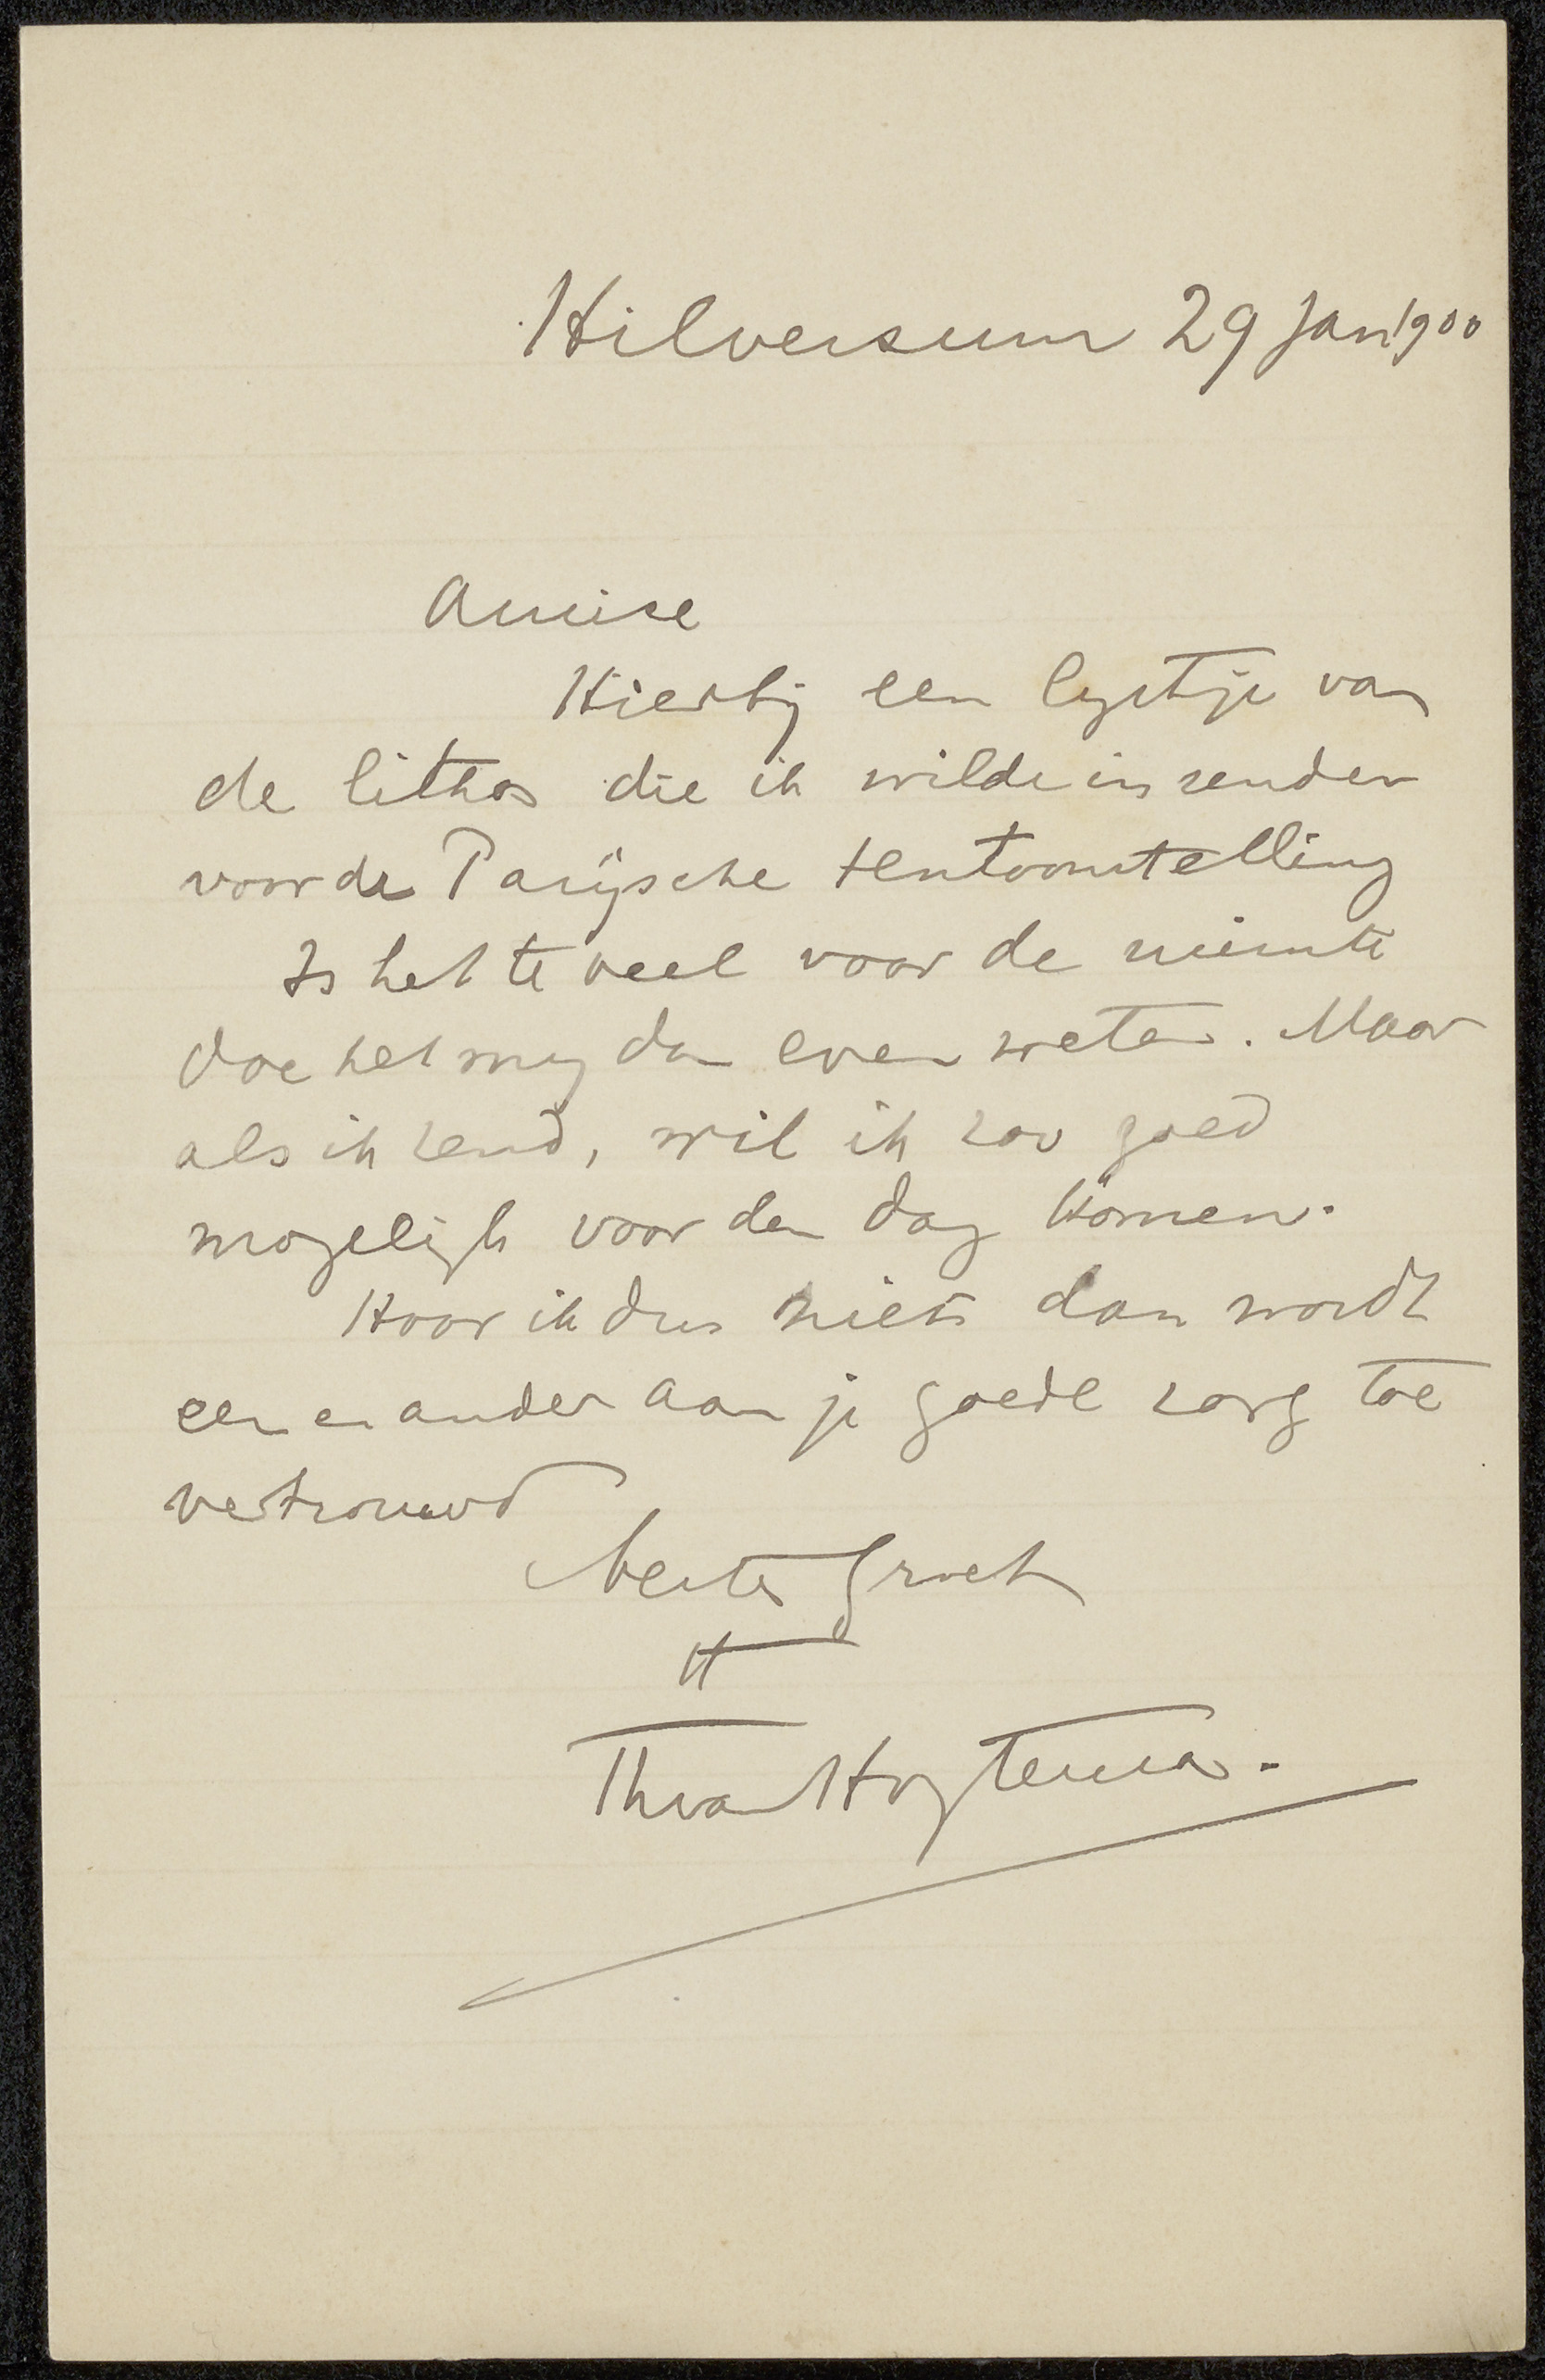 Hilversum 29 Jan 1900
Amice
Hierbij een lystje van
de lithos die ik wilde inzenden
voor de Parijsche tentoonstelling
Is het te veel voor de ruimte
doe het my dan even weten. Maar
als ik zend, wil ik zoo goed
mogelijk voor den dag komen.
Hoor ik dus niets dan wordt
een en ander aan je goede zorg toe
vertrouwd
beste groet
tt
Th van Hoytema.